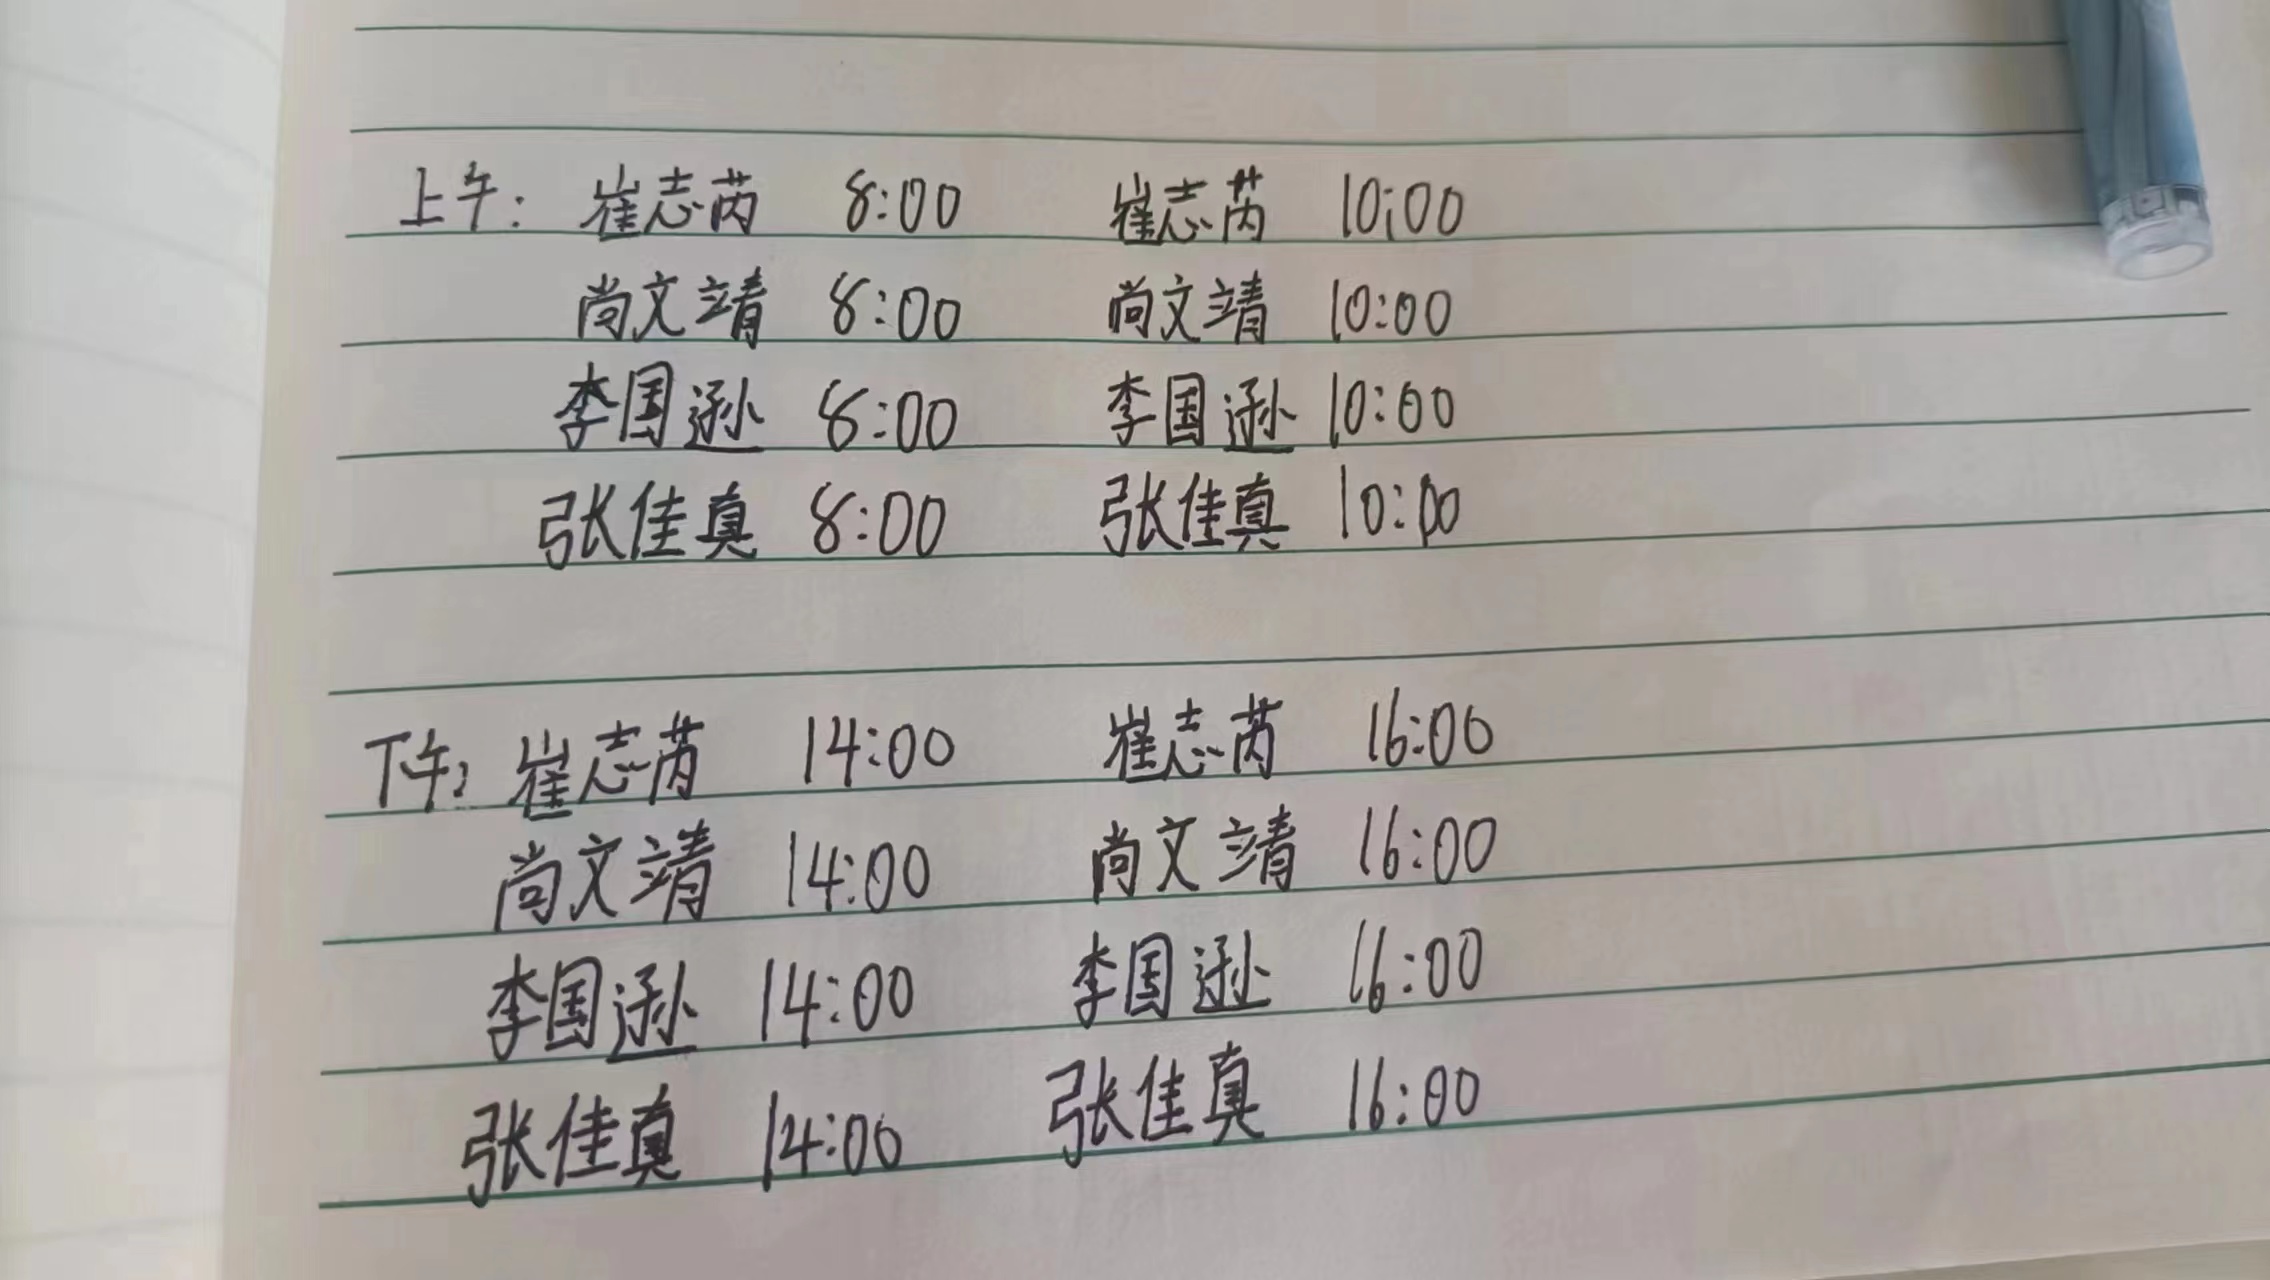 上午: 崔志芮 8:00 崔志芮 10:00
尚文靖 8:00 尚文靖 10:00
李国逊 8:00 李国逊 10:00
张佳真 8:00 张佳真 10:00
下午: 崔志芮 14:00 崔志芮 16:00
尚文靖 14:00 尚文靖 16:00
李国逊 14:00 李国逊 16:00
张佳真 14:00 张佳真 16:00